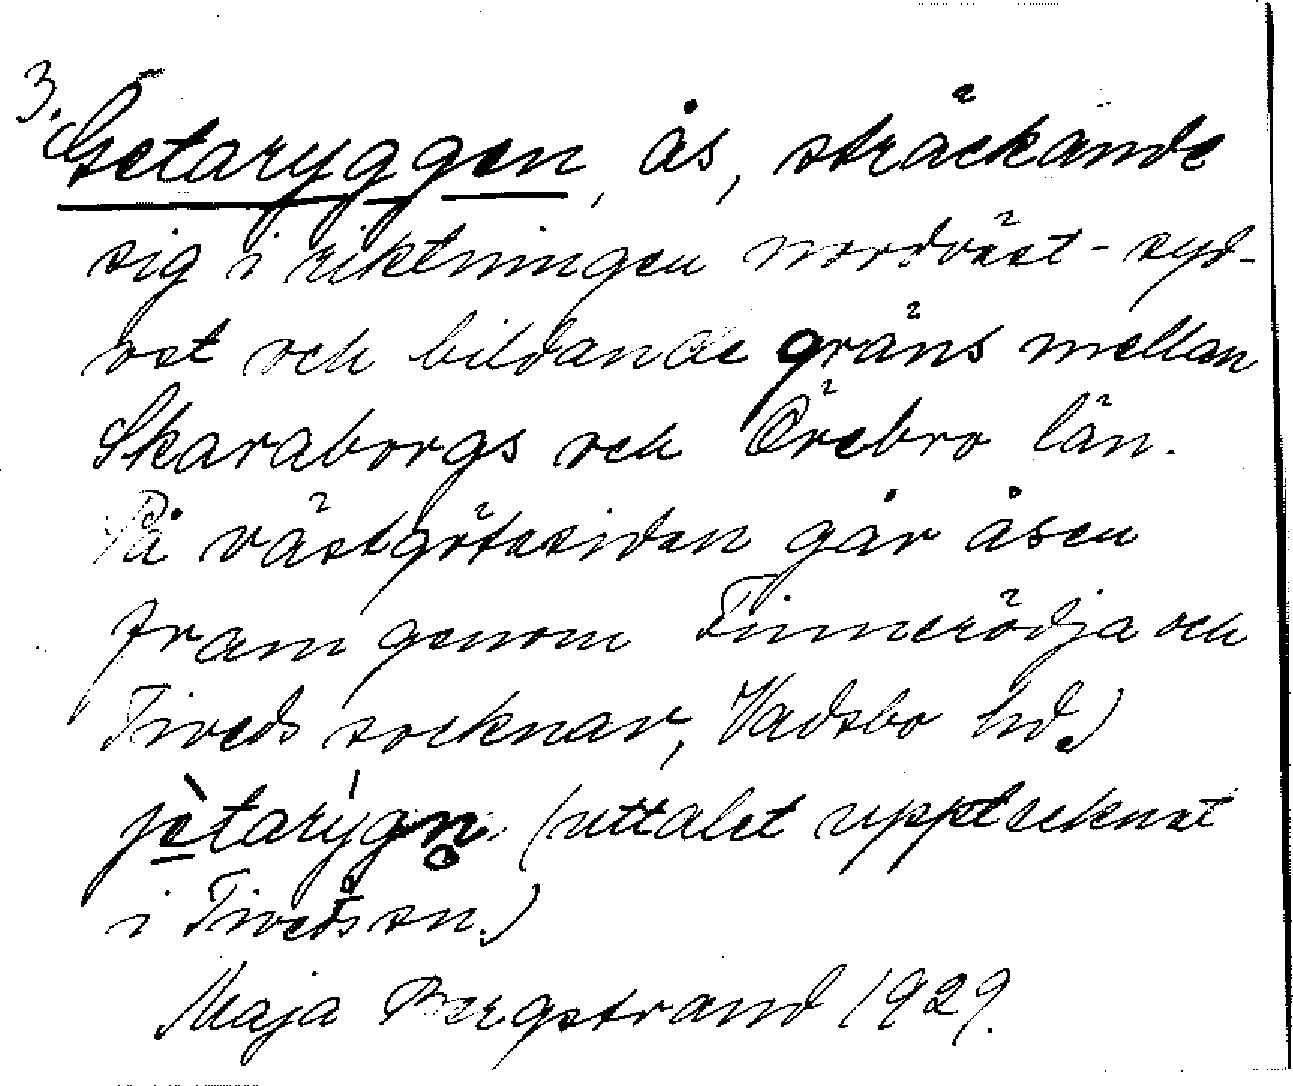 3. Getaryggen, ås, sträckande
sig i riktningen nordväst-syd-
ost och bildande gräns mellan
Skaraborgs och Örebro län.
På västgötasidan går åsen
fram genom Finnerödja och
Tiveds socknar, Vadsbo hd.)
jètarýgn̥. (uttalet upptecknat
i Tiveds sn.)
Maja Bergstrand 1929.